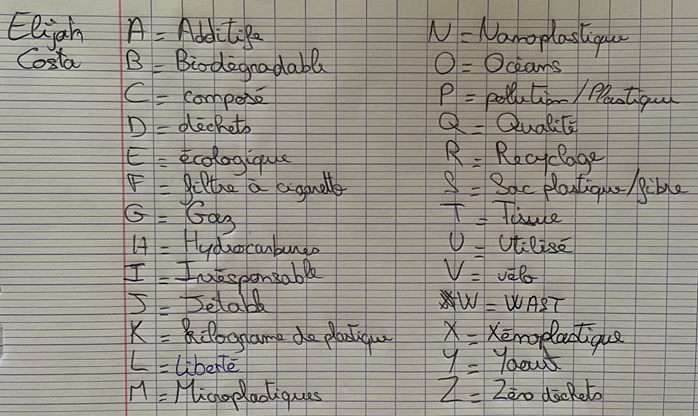 Elijah
Costa
A = Additifs
B = Biodégradable
C = composé
D = déchets
E = écologique
F = filtre à cigarette
G = Gaz
H = Hydrocarbures
I = Irrésponsable
J = Jétable
K = kilograme de plastique
L = Liberté
M = Microplastiques
N = Nanoplastique
O = Océans
P = pollution/Plastique
Q = Qualité
R = Recyclage
S = Sac plastique/fibre
T = Tissue
U = Utilisé
V = vélo
W = WAST
X = Xénoplastique
Y = Yaourt
Z = Zéro déchets